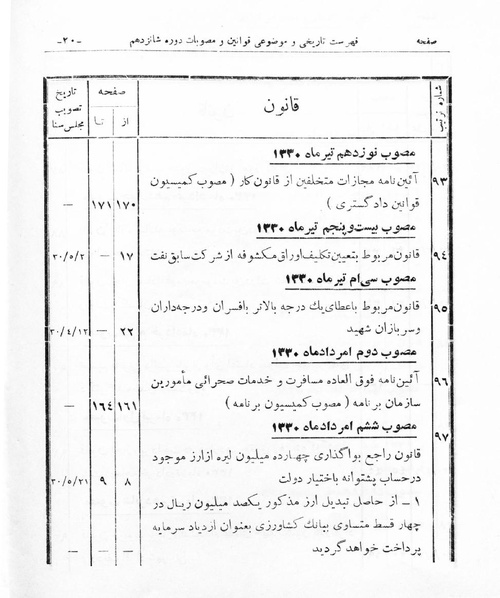 صفحه فهرست تاریخی و موضوعی قوانین و مصوبات دوره شانزدهم -۲۰-
شماره ترتیب قانون صفحه از تا تاریخ تصویب مجلس سنا
مصوب نوزدهم تیرماه ۱۳۳۰
۹۳ آئین‌نامه مجازات متخلفین از قانون کار ( مصوب کمیسیون
قوانین دادگستری ) ۱۷۰ ۱۷۱ —
مصوب بیست‌و‌پنجم تیرماه ۱۳۳۰
۹۴ قانون مربوط بتعیین تکلیف اوراق مکشوفه از شرکت سابق نفت ۱۷ — ۳۰/۵/۲
مصوب سی‌ام تیرماه ۱۳۳۰
۹۵ قانون مربوط باعطای یك درجه بالاتر بافسران ودرجه‌داران
وسربازان شهید ۲۲ — ۳۰/۴/۱۲
مصوب دوم امردادماه ۱۳۳۰
۹۶ آئین‌نامه فوق العاده مسافرت و خدمات صحرائی مأمورین
سازمان برنامه ( مصوب کمیسیون برنامه ) ۱۶۱ ۱۶۴ —
مصوب ششم امردادماه ۱۳۳۰
۹۷ قانون راجع بواگذاری چهارده میلیون لیره ازارز موجود
درحساب پشتوانه باختیار دولت ۸ ۹ ۳۰/۵/۲۱
۱ – از حاصل تبدیل ارز مذکور یکصد میلیون ریال در
چهار قسط متساوی ببانك کشاورزی بعنوان ازدیاد سرمایه
پرداخت خواهدگردید — — —